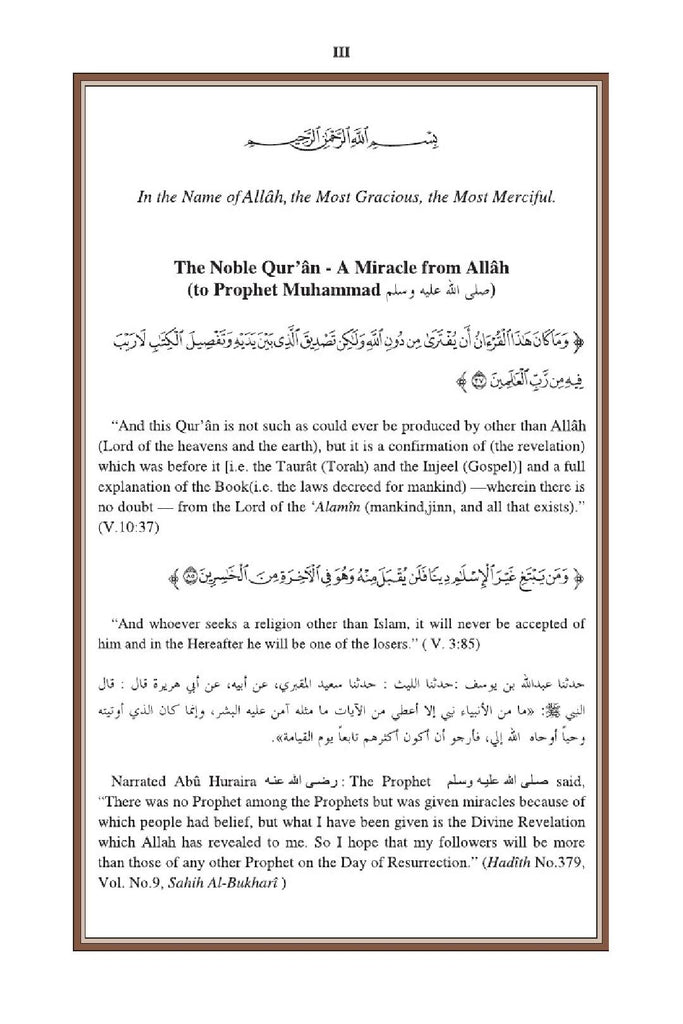 III
بِسْمِ اللَّهِ الرَّحْمَٰنِ الرَّحِيمِ
In the Name of Allâh, the Most Gracious, the Most Merciful.
The Noble Qur’ân - A Miracle from Allâh
(to Prophet Muhammad صلى الله عليه وسلم)
﴿ وَمَا كَانَ هَٰذَا الْقُرْءَانُ أَن يُفْتَرَىٰ مِن دُونِ اللَّهِ وَلَٰكِن تَصْدِيقَ الَّذِي بَيْنَ يَدَيْهِ وَتَفْصِيلَ الْكِتَٰبِ لَا رَيْبَ
فِيهِ مِن رَّبِّ الْعَٰلَمِينَ ٣٧ ﴾
“And this Qur’ân is not such as could ever be produced by other than Allâh
(Lord of the heavens and the earth), but it is a confirmation of (the revelation)
which was before it [i.e. the Taurât (Torah) and the Injeel (Gospel)] and a full
explanation of the Book(i.e. the laws decreed for mankind) —wherein there is
no doubt — from the Lord of the ‘Alamîn (mankind,jinn, and all that exists).”
(V.10:37)
﴿ وَمَن يَبْتَغِ غَيْرَ الْإِسْلَٰمِ دِينًا فَلَن يُقْبَلَ مِنْهُ وَهُوَ فِي الْآخِرَةِ مِنَ الْخَٰسِرِينَ ٨٥ ﴾
“And whoever seeks a religion other than Islam, it will never be accepted of
him and in the Hereafter he will be one of the losers.” ( V. 3:85)
حدثنا عبدالله بن يوسف :حدثنا الليث : حدثنا سعيد المقبري، عن أبيه، عن أبي هريرة قال : قال
النبي ﷺ: «ما من الأنبياء نبي إلا أعطي من الآيات ما مثله آمن عليه البشر، وإنما كان الذي أوتيته
وحياً أوحاه الله إلي، فأرجو أن أكون أكثرهم تابعاً يوم القيامة».
Narrated Abû Huraira رضى الله عنه : The Prophet صلى الله عليه وسلم said,
“There was no Prophet among the Prophets but was given miracles because of
which people had belief, but what I have been given is the Divine Revelation
which Allah has revealed to me. So I hope that my followers will be more
than those of any other Prophet on the Day of Resurrection.” (Hadîth No.379,
Vol. No.9, Sahih Al-Bukharî )